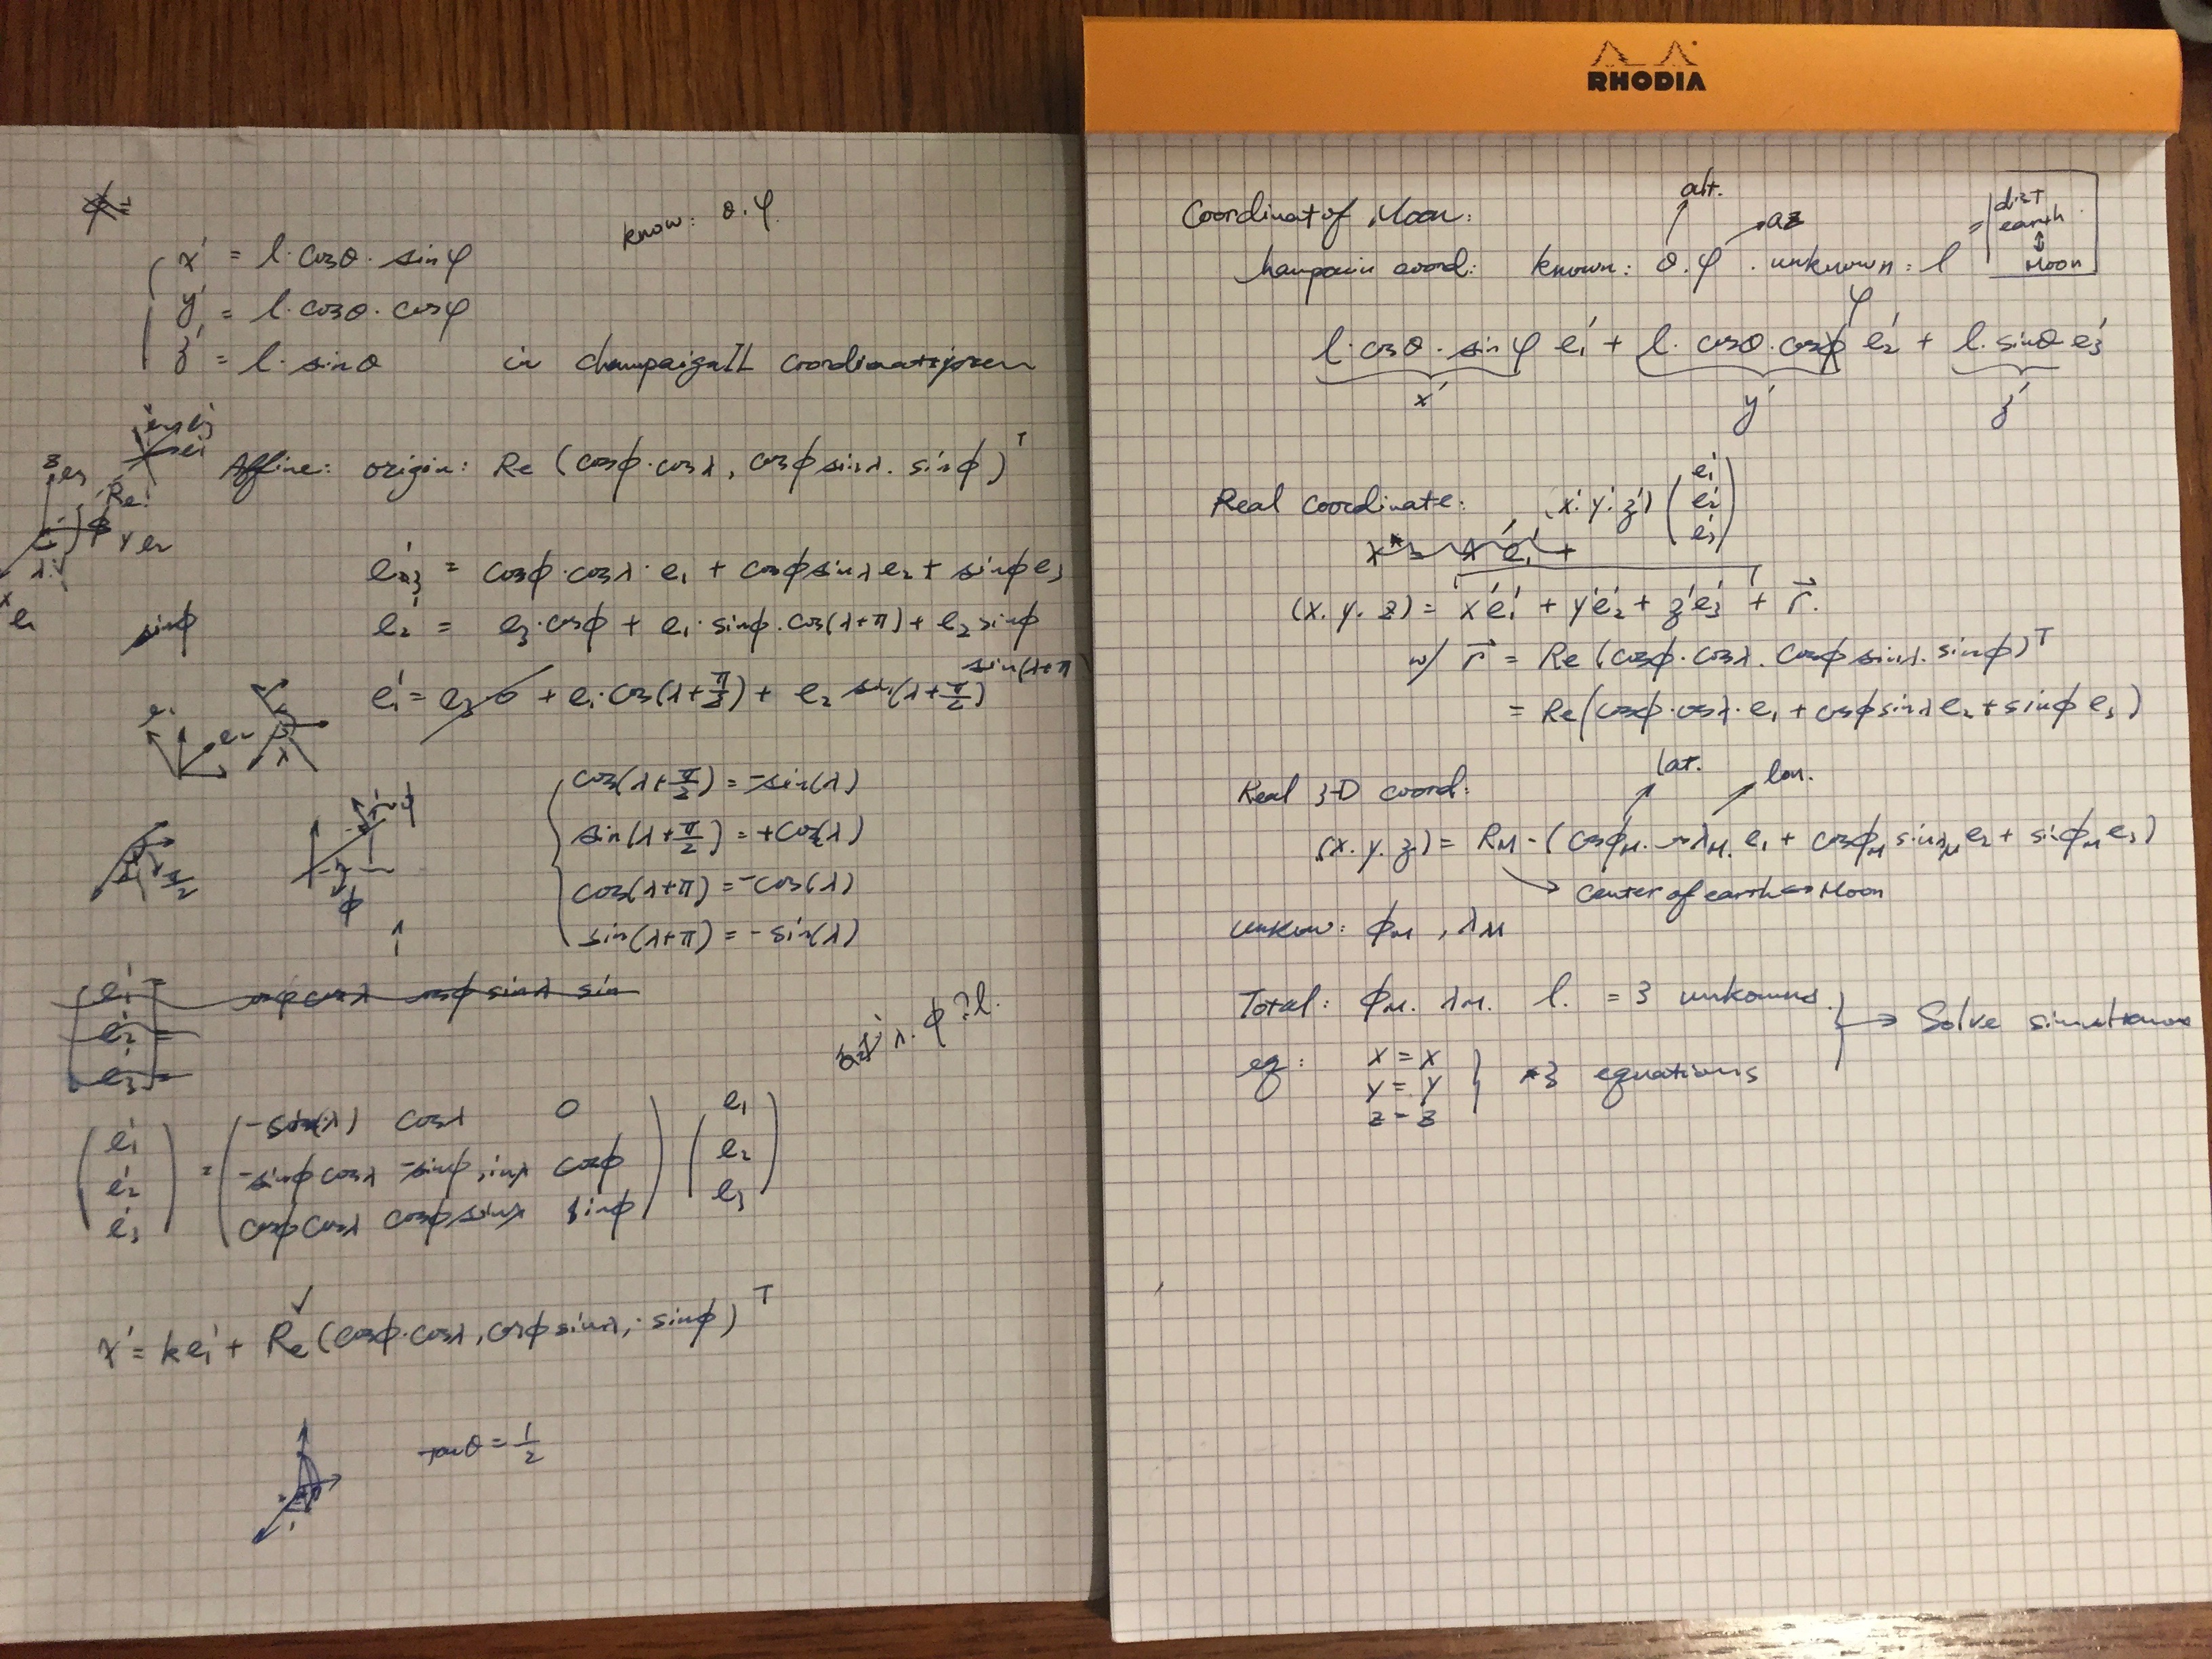 know: θ.φ
x' = l·cosθ·sinφ
y' = l·cosθ·cosφ
z' = l·sinθ in champaignIL coordinatsystem
Affine: origin: Re (cosϕ·cosλ, cosϕ sinλ. sinϕ)^T
z e3
Re
ϕ
Y e2
λ
x
e1
e'3 = cosϕ·cosλ·e1 + cosϕ sinλ e2 + sinϕ e3
sinϕ
e'2 = e3·cosϕ + e1·sinϕ.cos(λ+π) + e2 sinϕ
sin(λ+π)
e'1 = e3·0 + e1·cos(λ+π/2) + e2 sin(λ+π/2)
λ
cos(λ+π/2) = -sin(λ)
sin(λ+π/2) = +cos(λ)
cos(λ+π) = -cos(λ)
sin(λ+π) = -sin(λ)
π/2
ϕ
e'1 = cosϕ cosλ cosϕ sinλ sin
e'2 =
e'3 =
λ. ϕ ? l.
(e'1 e'2 e'3) = (-sin(λ) cosλ 0
-sinϕ cosλ -sinϕ sinλ cosϕ
cosϕ cosλ cosϕ sinλ sinϕ) (e1 e2 e3)
x' = k e'1 + Re (cosϕ·cosλ, cosϕ sinλ, sinϕ)^T
tanθ = 1/2
RHODIA
alt.
Coordinat of Moon:
az
dist
earth
↕
Moon
coord: known: θ.φ . unknown: l =
φ
l·cosθ·sinφ e'1 + l·cosθ·cosϕ e'2 + l·sinθ e'3
x' y' z'
Real coordinate: (x'.y'.z') (e'1 e'2 e'3)
x = x'e'1 +
(x. y. z) = x'e'1 + y'e'2 + z'e'3 + r.
w/ r = Re (cosϕ·cosλ. cosϕ sinλ. sinϕ)^T
= Re (cosϕ·cosλ·e1 + cosϕ sinλ e2 + sinϕ e3)
lat. lon.
Real 3-D coord:
(x. y. z) = RM · (cosϕM. cosλM. e1 + cosϕM sinλM e2 + sinϕM e3)
center of earth ↔ Moon
unkow: ϕM , λM
Total: ϕM. λM. l. = 3 unkowns
Solve simultaneous
eq: x = x
y = y
z = z
3 equations